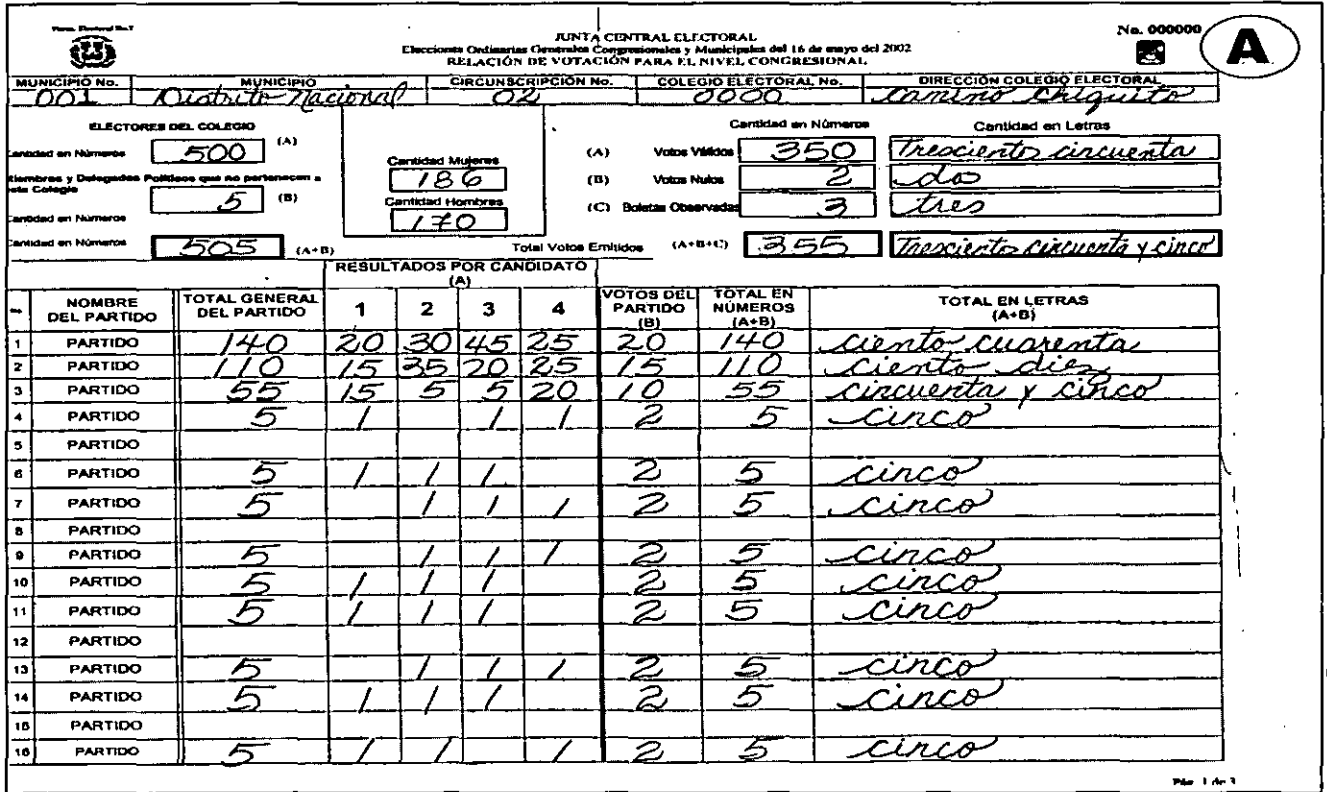 Form. Electoral No.7
No. 000000
A
JUNTA CENTRAL ELECTORAL
Elecciones Ordinarias Generales Congresionales y Municipales del 16 de mayo del 2002
RELACIÓN DE VOTACIÓN PARA EL NIVEL CONGRESIONAL
MUNICIPIO No. MUNICIPIO CIRCUNSCRIPCIÓN No. COLEGIO ELECTORAL No. DIRECCIÓN COLEGIO ELECTORAL
001 Distrito Nacional 02 0000 Camino Chiquito
ELECTORES DEL COLEGIO
Cantidad en Números 500 (A)
Miembros y Delegados Políticos que no pertenecen a este Colegio
5 (B)
Cantidad en Números
Cantidad en Números 505 (A+B)
Cantidad Mujeres
186
Cantidad Hombres
170
Cantidad en Números Cantidad en Letras
(A) Votos Válidos 350 Trescientos cincuenta
(B) Votos Nulos 2 dos
(C) Boletas Observadas 3 tres
Total Votos Emitidos (A+B+C) 355 Trescientos cincuenta y cinco
RESULTADOS POR CANDIDATO
(A)
NOMBRE DEL PARTIDO TOTAL GENERAL DEL PARTIDO 1 2 3 4 VOTOS DEL PARTIDO (B) TOTAL EN NÚMEROS (A+B) TOTAL EN LETRAS (A+B)
1 PARTIDO 140 20 30 45 25 20 140 ciento cuarenta
2 PARTIDO 110 15 35 20 25 15 110 ciento diez
3 PARTIDO 55 15 5 5 20 10 55 cincuenta y cinco
4 PARTIDO 5 1 1 1 2 5 cinco
5 PARTIDO
6 PARTIDO 5 1 1 1 2 5 cinco
7 PARTIDO 5 1 1 1 2 5 cinco
8 PARTIDO
9 PARTIDO 5 1 1 1 2 5 cinco
10 PARTIDO 5 1 1 1 2 5 cinco
11 PARTIDO 5 1 1 1 2 5 cinco
12 PARTIDO
13 PARTIDO 5 1 1 1 2 5 cinco
14 PARTIDO 5 1 1 1 2 5 cinco
15 PARTIDO
16 PARTIDO 5 1 1 1 2 5 cinco
Pág. 1 de 3